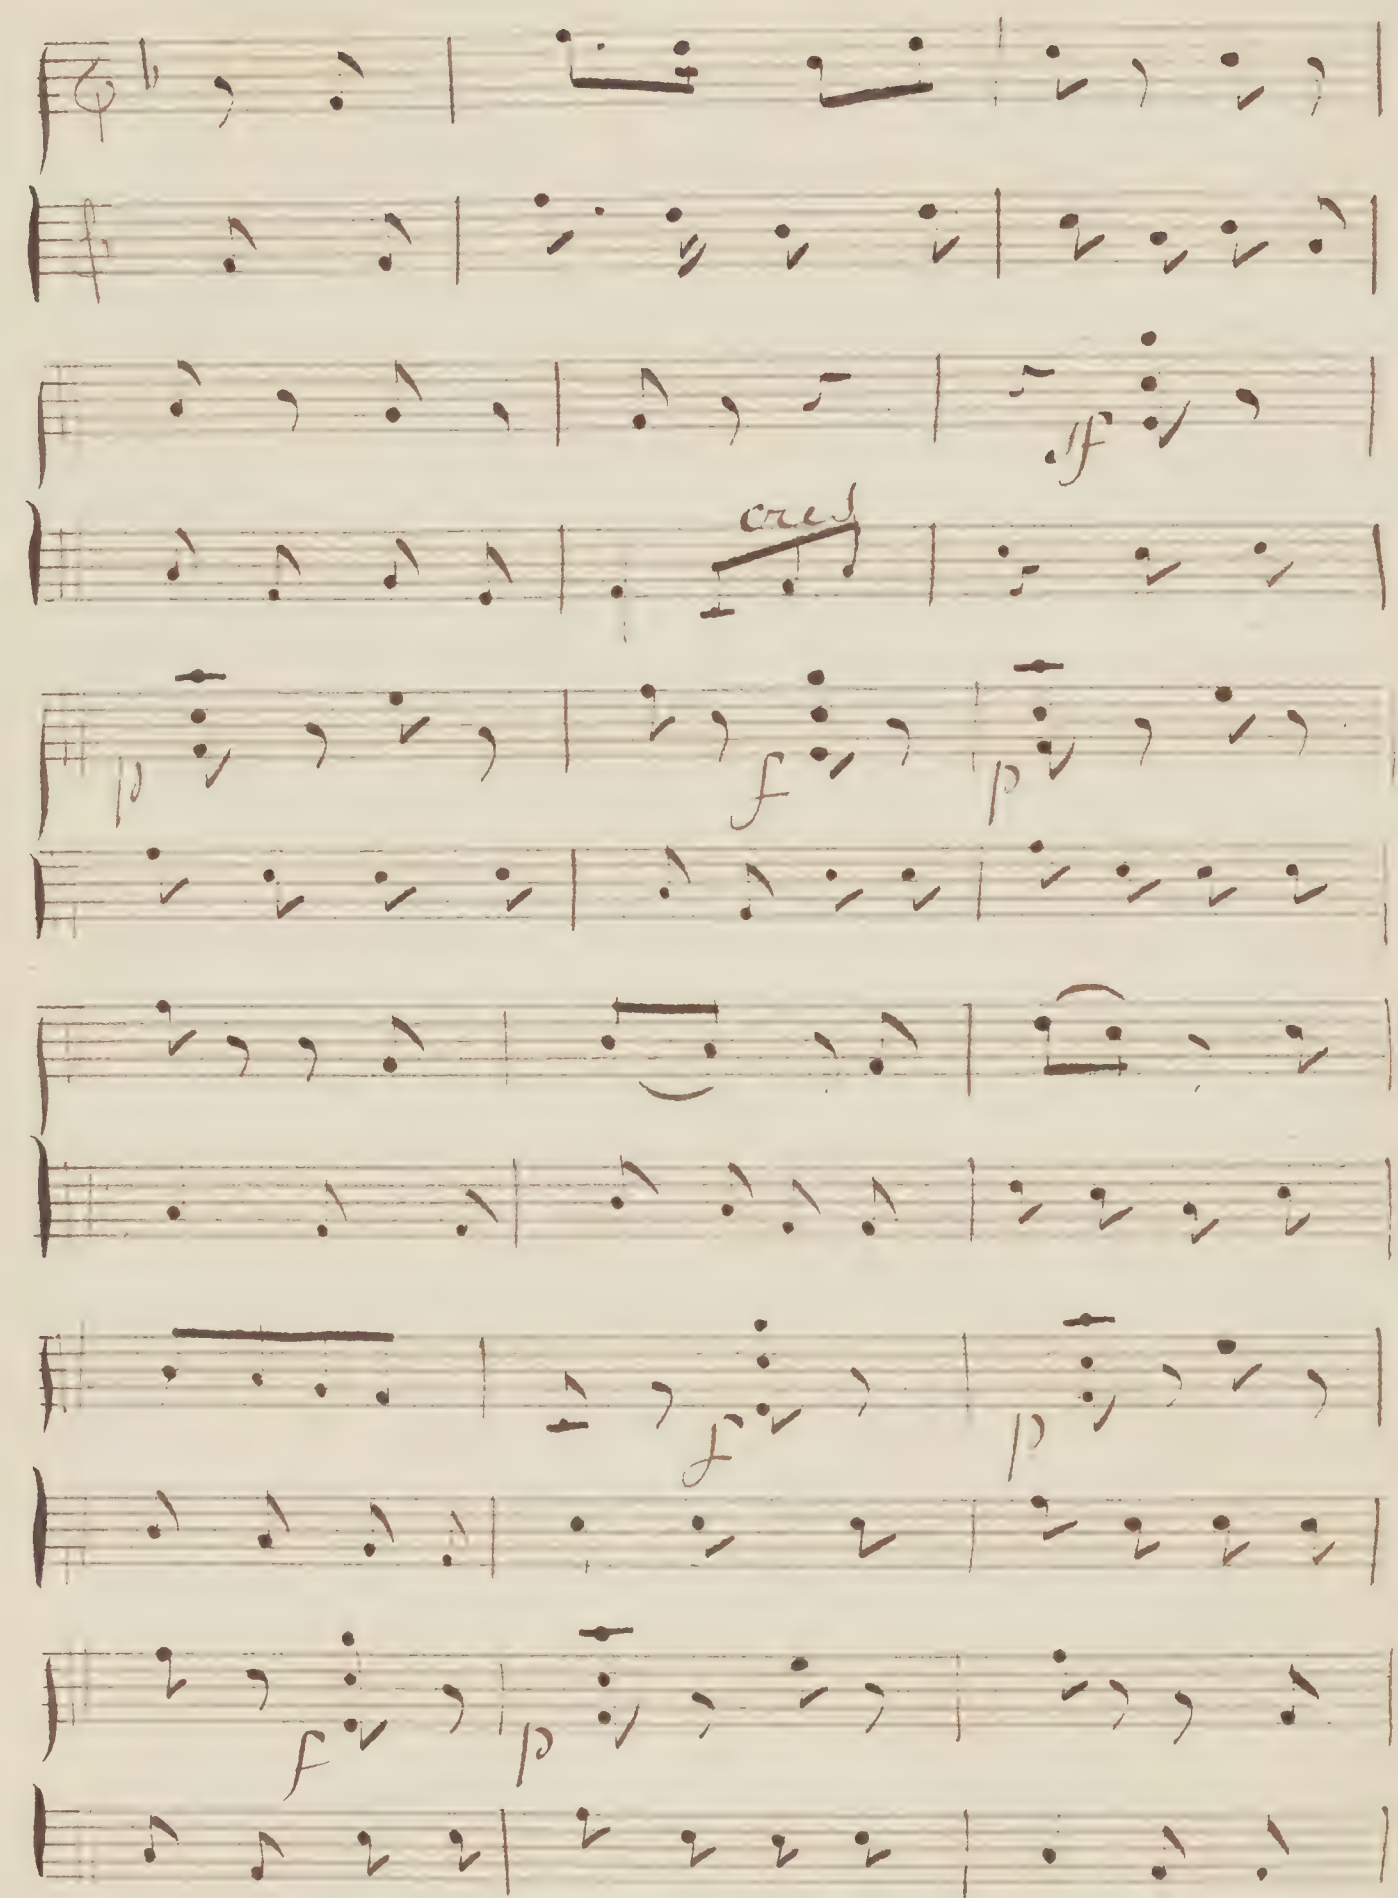 sf
cres
p f p
f p
f p